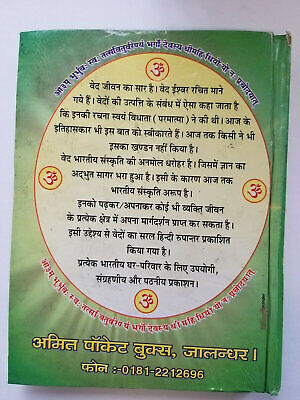 ओ३म् भूर्भुवः स्वः तत्सवितुर्वरेण्यं भर्गो देवस्य धीमहि धियो यो नः प्रचोदयात्
ॐ
वेद जीवन का सार है। वेद ईश्वर रचित माने
गये हैं। वेदों की उत्पत्ति के संबंध में ऐसा कहा जाता है
कि इनकी रचना स्वयं विधाता ( परमात्मा ) ने की थी। आज के
इतिहासकार भी इस बात को स्वीकारते हैं। आज तक किसी ने भी
इसका खण्डन नहीं किया है।
वेद भारतीय संस्कृति की अनमोल धरोहर है। जिसमें ज्ञान का
अद्भुत सागर भरा हुआ है। इसी के कारण आज तक
भारतीय संस्कृति अरूप है।
ॐ
ॐ
इनको पढ़कर/अपनाकर कोई भी व्यक्ति जीवन
के प्रत्येक क्षेत्र में अपना मार्गदर्शन प्राप्त कर सकता है।
इसी उद्देश्य से वेदों का सरल हिन्दी रुपान्तर प्रकाशित
किया गया है।
प्रत्येक भारतीय घर-परिवार के लिए उपयोगी,
संग्रहणीय और पठनीय प्रकाशन।
ॐ
ओ३म् भूर्भुवः स्वः तत्सवितुर्वरेण्यं भर्गो देवस्य धीमहि धियो यो नः प्रचोदयात्
अमित पॉकेट बुक्स, जालन्धर।
फोन :-0181-2212696